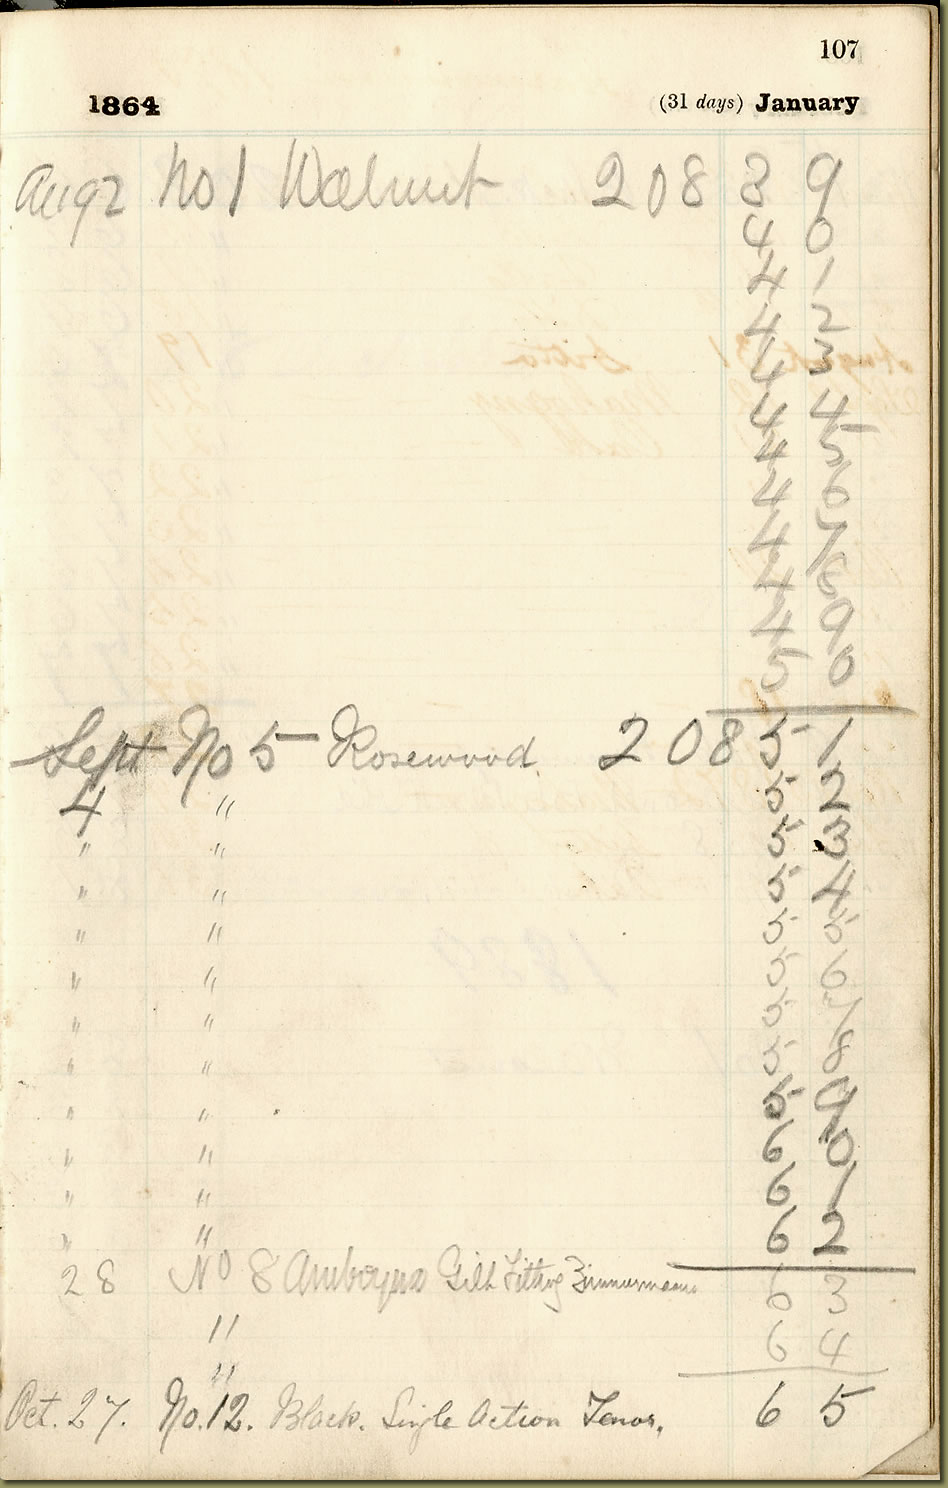 107
1864 (31 days) January
Aug 2 No 1 Walnut 208 3 9
4 0
4 1
4 2
4 3
4 4
4 5
4 6
4 7
4 8
4 9
5 0
Sept No 5 Rosewood 208 5 1
4 " 5 2
" " 5 3
" " 5 4
" " 5 5
" " 5 6
" " 5 7
" " 5 8
" " 5 9
" " 6 0
" " 6 1
" " 6 2
28 No 8 Amboyna Gilt Fitting Zimmermann 6 3
" 6 4
"
Oct. 27. No. 12. Black. Single Action Tenor. 6 5